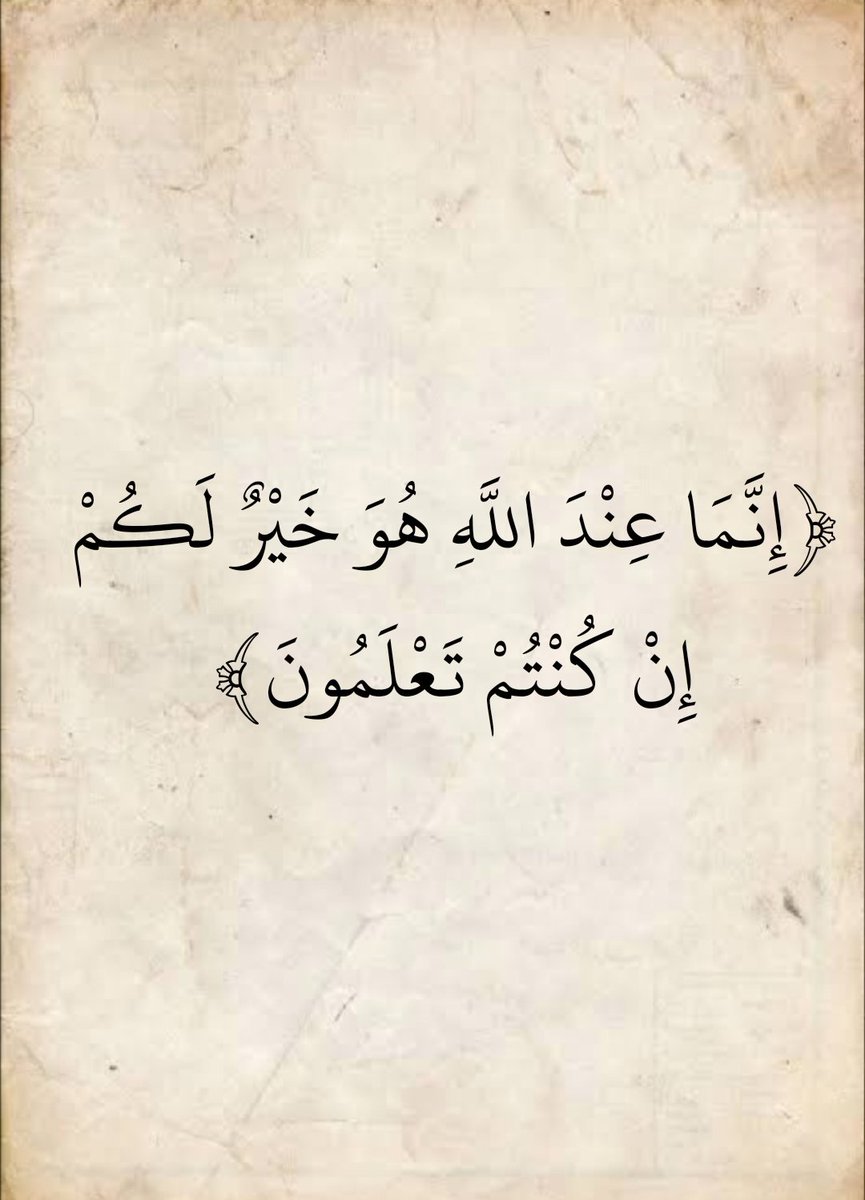 ﴿إِنَّمَا عِنْدَ اللَّهِ هُوَ خَيْرٌ لَكُمْ
إِنْ كُنْتُمْ تَعْلَمُونَ﴾